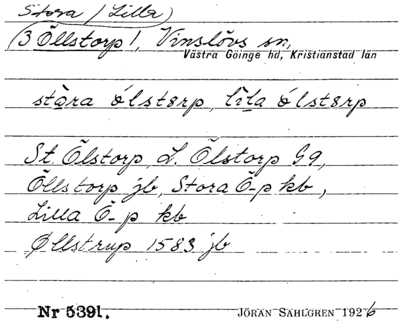 Stora (Lilla)
(3 Öllstorp), Vinslövs sn,
Västra Göinge hd, Kristianstad län
stòra ólstərp, lìla ólstərp
St. Ölstorp, L. Ölstorp GG,
Öllstorp jb, Stora Ö-p kb,
Lilla Ö-p kb
Øllstrup 1583 jb
Nr 5391.
JÖRAN SAHLGREN 1926